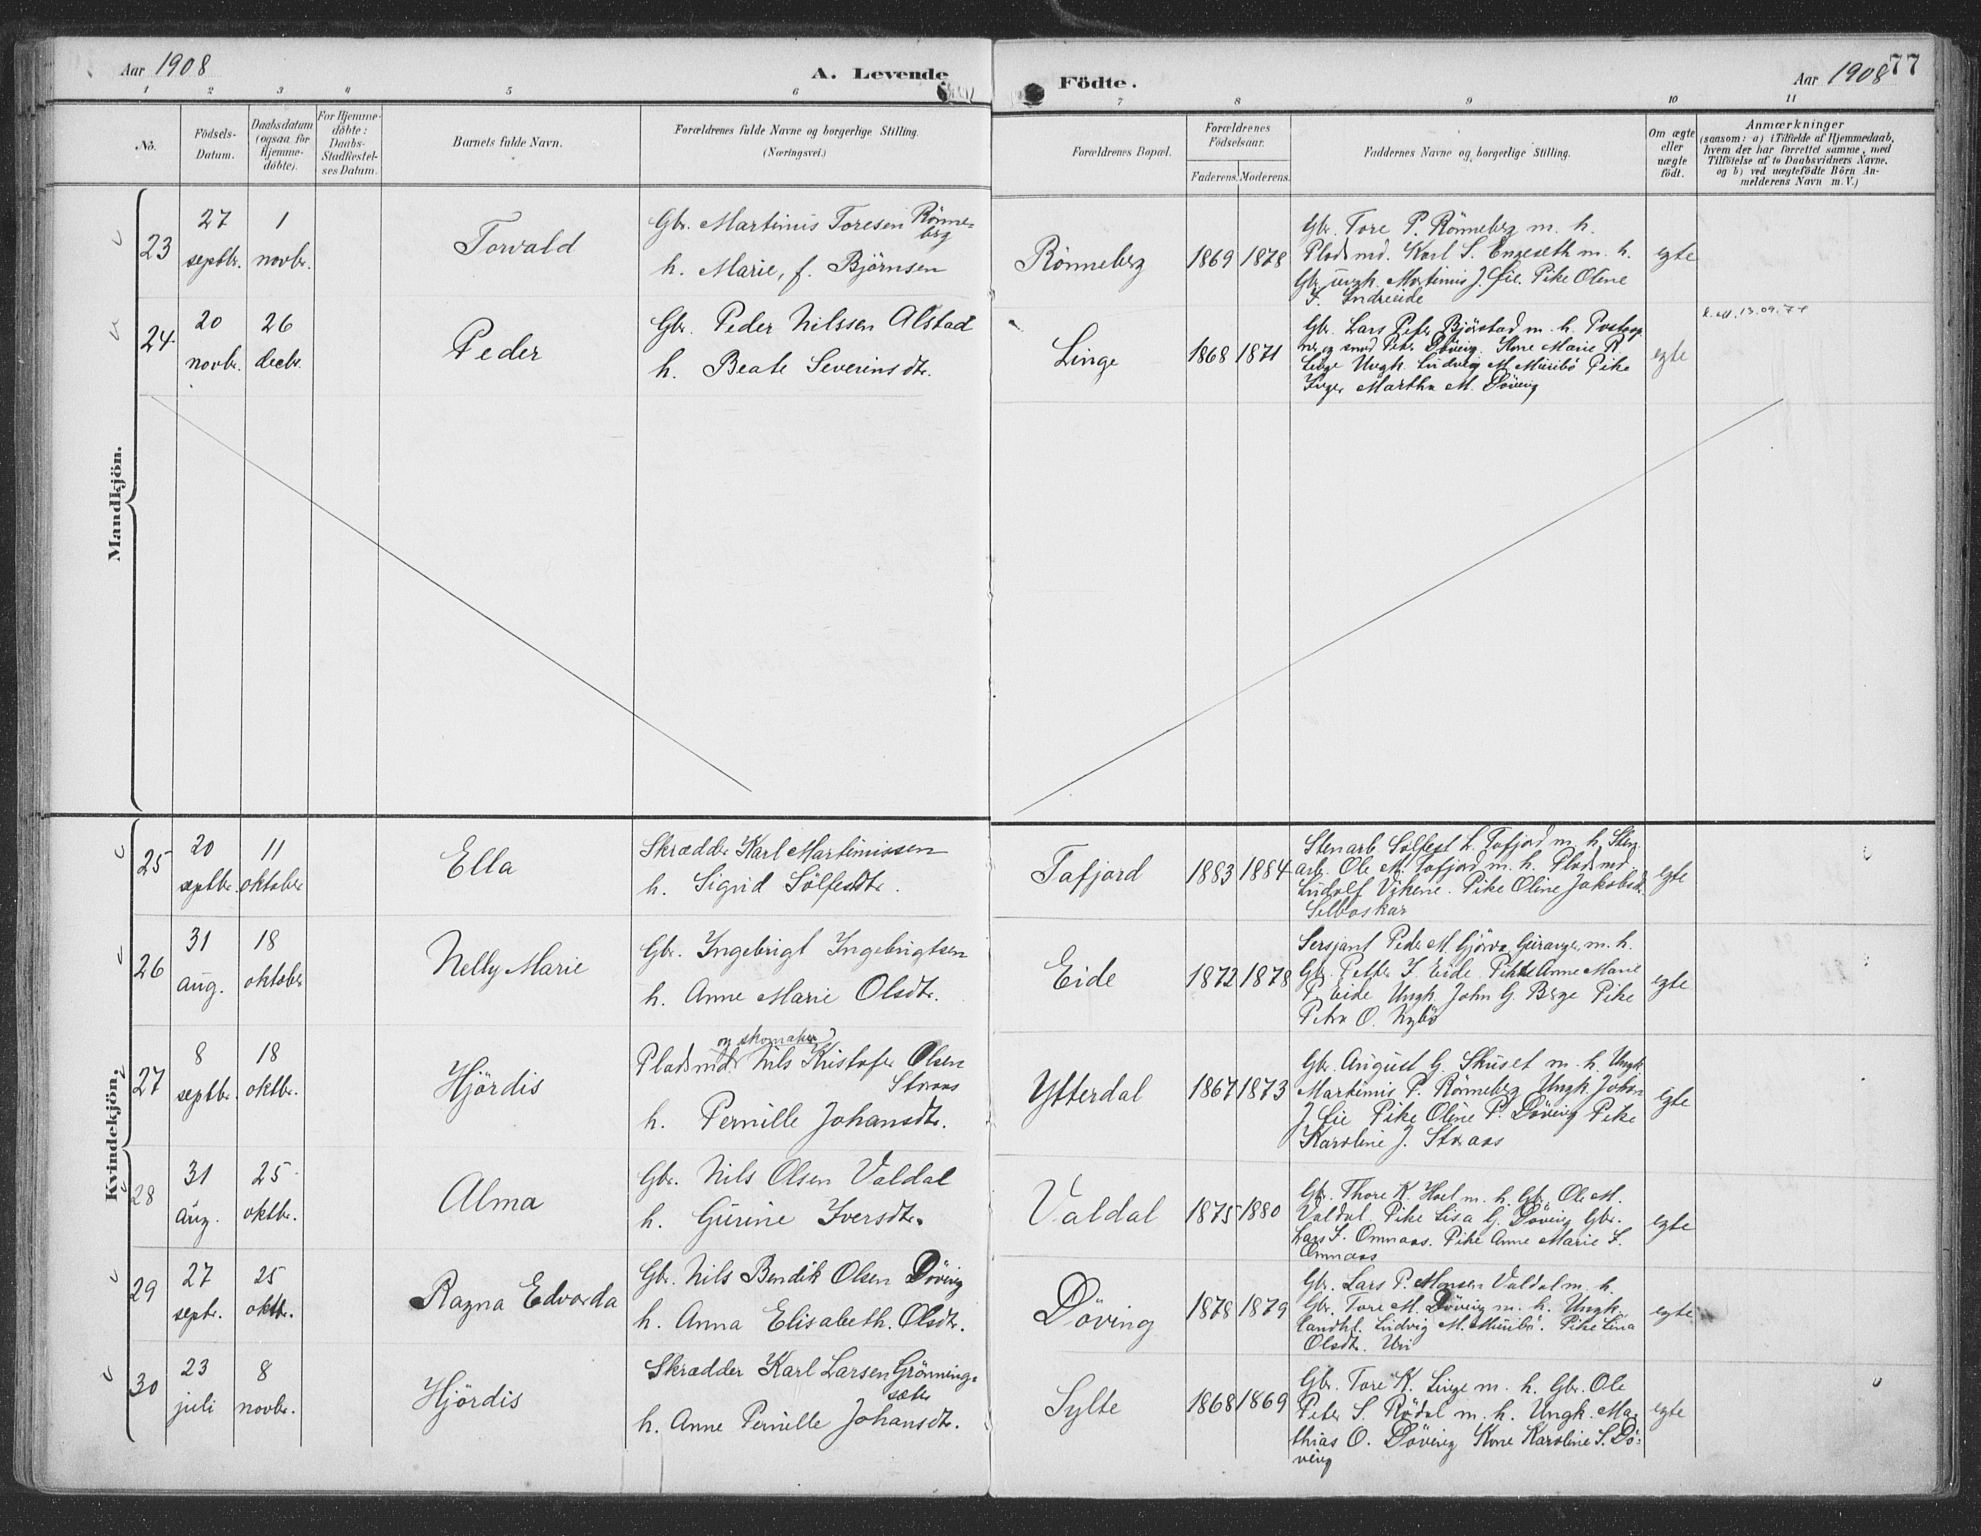 Aar 1908
A. Levende
Födte.
Aar 1908
77
1 2 3 4 5 6 7 8 9 10 11
No.
Födsels-
Datum.
Daabsdatum
(ogsaa for
Hjemme-
døbte).
For Hjemme-
døbte:
Daabs-
Stadfæstel-
ses Datum.
Barnets fulde Navn.
Forældrenes fulde Navne og borgerlige Stilling.
(Næringsvei.)
Forældrenes Bopæl.
Forældrenes
Födselsaar.
Faderens. Moderens.
Faddernes Navne og borgerlige Stilling.
Om ægte
eller
uægte
födt.
Anmærkninger
(saasom: a) i Tilfælde af Hjemmedaab,
hvem der har forrettet samme, med
Tilföielse af to Daabsvidners Navne,
og b) ved uægtefödte Börn An-
melderens Navn m. V.)
Mandkjön.
23
27
septbr.
1
novbr.
Torvald
Gbr. Martinus Toresen Rönne-
berg
h. Marie, f. Björnsen
Rönneberg
1869 1878
Gbr. Tore P. Rönneberg m. h.
Pladsmd. Karl S. Engeseth m. h.
Gbr. ungk. Martinus J. Lie. Pike Oline
Indreeide
egte
24
20
novbr.
26
decbr.
Peder
Gbr. Peder Nilssen Alstad
h. Beate Severinsdtr.
Linge
1868 1871
Gbr. Lars Peter Björstad m. h. Postaap
ner og smed Peter Döving. Kone Marie P.
Linge Ungk. Ludvig M. Muribö Pike
Inger Martha M. Döving
egte
13.09.74
Kvindekjön.
25
20
septbr.
11
oktober
Ella
Skrædder Karl Martinissen
h. Sigrid Sölfestdtr.
Tafjord
1883 1884
Stenarb. Sölfest L. Tafjord m. h. Sten
arb. Ole M. Tafjord m. h. Pladsmd.
Ludolf Vikene. Pike Oline Jakobsdtr.
Selboskar
egte
26
31
aug.
18
oktober
Nelly Marie
Gbr. Ingebrigt Ingebrigtsen
h. Anne Marie Olsdtr.
Eide
1872 1878
Sersjant Peder M. Gjörva, Geiranger m. h.
Gbr. Petter I. Eide. Pike Anne Marie
P. Eide Ungk. John G. Berge Pike
Petra O. Nybö
egte
27
8
septbr.
18
oktbr.
Hjördis
og skomaker
Pladsmd. Nils Kristofer Olsen
Straas
h. Pernille Johansdtr.
Ytterdal
1867 1873
Gbr. August G. Skuset m. h. Ungk.
Martinus P. Rönneberg Ungk. Johan
J. Lie Pike Oline P. Döving Pike
Karoline J. Straas
egte
28
31
aug.
25
oktbr.
Alma
Gbr. Nils Olsen Valdal
h. Gurine Iversdtr.
Valdal
1875 1880
Gbr. Thore K. Hoel m. h. Gbr. Ole M.
Valdal. Pike Lisa G. Döving Gbr.
Lars I. Omnaas. Pike Anne Marie I.
Omnaas
egte
29
27
septr.
25
oktbr.
Ragna Edvarda
Gbr. Nils Bendik Olsen Döving
h. Anna Elisabeth. Olsdtr.
Döving
1878 1879
Gbr. Lars P. Monsen Valdal m. h.
Gbr. Tore M. Döving m. h. Ungk.
landhl. Ludvig M. Muribö. Pike Lina
Olsdtr. Uri
egte
30
23
juli
8
novbr.
Hjördis
Skrædder Karl Larsen Grönning-
sæter
h. Anne Pernille Johansdtr.
Sylte
1868 1869
Gbr. Tore K. Linge m. h. Gbr. Ole
Peter S. Rödal m. h. Ungk. Ma-
thias O. Döving Kone Karoline S. Dö-
ving
egte